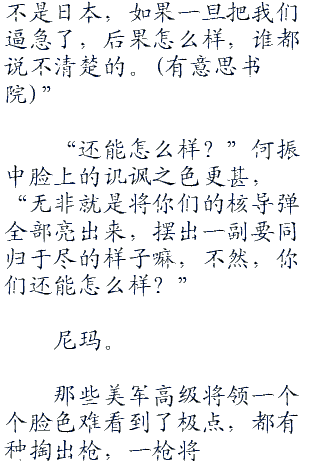 不是日本，如果一旦把我们
逼急了，后果怎么样，谁都
说不清楚的。(有意思书
院)”
“还能怎么样？”何振
中脸上的讥讽之色更甚，
“无非就是将你们的核导弹
全部亮出来，摆出一副要同
归于尽的样子嘛，不然，你
们还能怎么样？”
尼玛。
那些美军高级将领一个
个脸色难看到了极点，都有
种掏出枪，一枪将